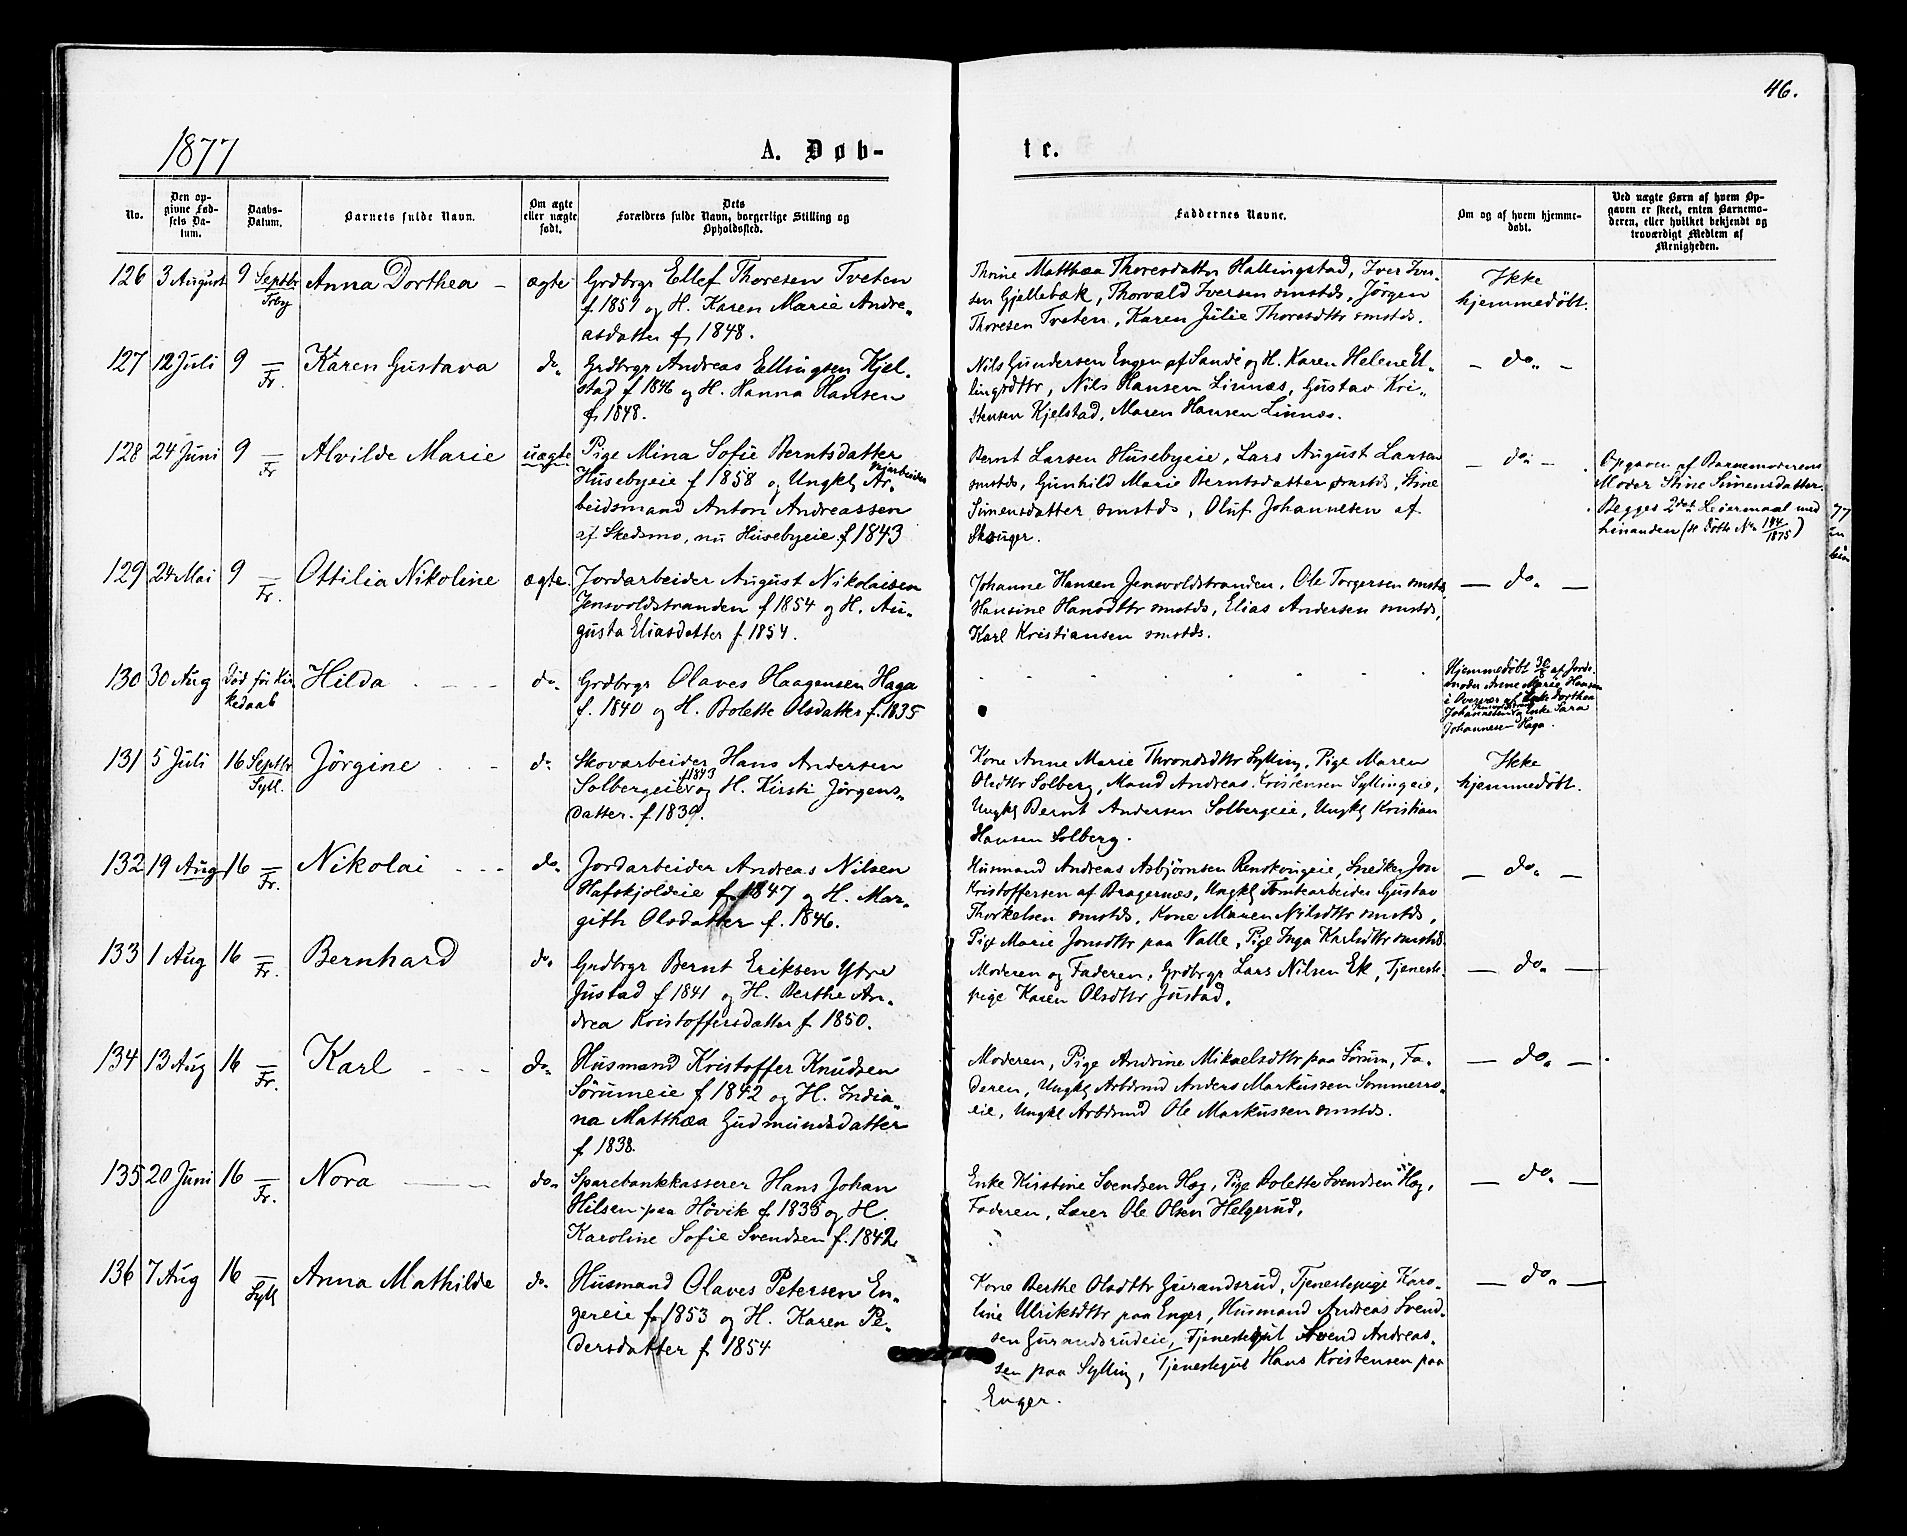 46.
1877
A. Døb-
te.
No.
Den op-
givne Fød-
sels Da-
tum.
Daabs-
Datum.
Barnets fulde Navn.
Om ægte
eller uægte
født.
Dets
Forældres fulde Navn, borgerlige Stilling og
Opholdssted.
Faddernes Navne.
Om og af hvem hjemme-
døbt.
Ved uægte Børn af hvem Op-
gaven er skeet, enten Barnemo-
deren, eller hvilket bekjendt og
troværdigt Medlem af
Menigheden.
126 3 August 9 Septbr Anna Dorthea – ægte
Grdbrgr Ellef Thoresen Tveten
f. 1851 og H. Karen Marie Andre-
asdatter f 1848.
Thrine Matthæa Thoresdatter Hallingstad, Iver Iver-
sen Gjellebæk, Thorvald Iversen smstds, Jörgen
Thoresen Tveten, Karen Julie Thoresdttr smstds.
Ikke
hjemmedöbt.
127 12 Juli 9 – Fr. Karen Gustava do.
Grdbrgr Andreas Ellingsen Kjel-
stad f 1846 og H. Hanna Hansen
f. 1848.
Nils Gundersen Engen af Sande og H. Karen Helene El-
lingsdttr, Nils Hansen Linnæs, Gustav Kri-
stensen Kjelstad, Maren Hansen Linnæs.
– do. –
128 24 Juni 9 – Fr Alvilde Marie uægte
Pige Mina Sofie Berntsdatter
Husebyeie f 1858 og Ungkl Ar-
beidsmand Anton Andreassen
af Skedsmo, nu Husebyeie f 1843
Bernt Larsen Husebyeie, Lars August Larsen
smstds, Gunhild Marie Berntsdatter smstds, Stine
Simensdatter smstds, Oluf Johannesen af
Skouger.
– do. –
Opgaven af Barnemoderens
Moder Stine Simensdatter.
Begges 2det Leiermaal med
hinanden (se Döbte No 144/1875)
129 24 Mai 9 – Fr. Ottilia Nikoline ægte.
Jordarbeider August Nikolaisen
Jensvoldstranden f 1854 og H. Au-
gusta Eliasdatter f. 1854.
Johanne Hansen Jensvoldstranden, Ole Torgersen smstds,
Hansine Hansdttr smstds, Elias Andersen smstds,
Karl Kristiansen smstds.
– do. –
130 30 Aug Död för Kir-
kedaab Hilda do.
Grdbrgr Olaves Haagensen Haga
f. 1840 og H. Bolette Olsdatter f. 1835
Hjemmedöbt 30/8 af Jorde-
moder Anne Marie Hansen
i Overvær af Enke Dorthea
Johannesen og Enke Sara
Johannesen Haga.
131 5 Juli 16 Septbr Syll. Jörgine do
Skovarbeider Hans Andersen
Solbergeie f 1843 og H. Kirsti Jörgens-
datter. f 1839.
Kone Anne Marie Throndsdttr Sylling, Pige Maren
Olsdttr Solberg, Mand Andreas Kristensen Syllingeie,
Ungkl Bernt Andersen Solbergeie, Ungkl Kristian
Hansen Solberg.
Ikke
hjemmedöbt.
132 19 Aug 16 – Fr. Nikolai do.
Jordarbeider Andreas Nilsen
Hafskjoldeie f 1847 og H. Mar-
gith Olsdatter f. 1846.
Husmand Andreas Asbjørnsen Renskougeie, Snedker Jon
Kristoffersen af Bragernæs, Ungkl Tomtearbeider Gustav
Thorkelsen smstds, Kone Maren Nilsdttr smstds,
Pige Marie Jonsdttr paa Valle, Pige Inga Karlsdttr smstds.
– do. –
133 1 Aug 16 – Fr. Bernhard do.
Grdbrgr Bernt Eriksen Ytre
Justad f 1841 og H. Berthe An-
drea Kristoffersdatter f 1850.
Moderen og Faderen, Grdbrgr Lars Nilsen Ek, Tjeneste-
pige Karen Olsdttr Justad.
– do. –
134 13 Aug 16 – Fr. Karl do.
Husmand Kristoffer Knudsen
Sörumeie f 1842 og H. India-
na Matthæa Gudmundsdatter
f 1838.
Moderen, Pige Andrine Mikaelsdttr paa Sörum, Fa-
deren, Ungkl Arbdmd Anders Markussen Sommerro-
eie, Ungkl Arbdmd Ole Markussen smstds.
– do. –
135 20 Juni 16 – Fr. Nora do.
Sparebankkasserer Hans Johan
Hilsen paa Hövik f 1835 og H.
Karoline Sofie Svendsen f. 1842
Enke Kirstine Svendsen Høg, Pige Bolette Svendsen Høg,
Faderen, Lærer Ole Olsen Helgerud.
– do. –
136 7 Aug 16 – Syll Anna Mathilde do.
Husmand Olaves Petersen En-
gereie f 1853 og H. Karen Pe-
dersdatter f 1854
Kone Berthe Olsdttr Gurandsrud, Tjenestepige Karo-
line Ulriksdttr paa Enger, Husmand Andreas Svend-
sen Gurandsrudeie, Tjenestegut Svend Andreas-
sen paa Sylling, Tjenestegut Hans Kristensen paa
Enger.
– do. –